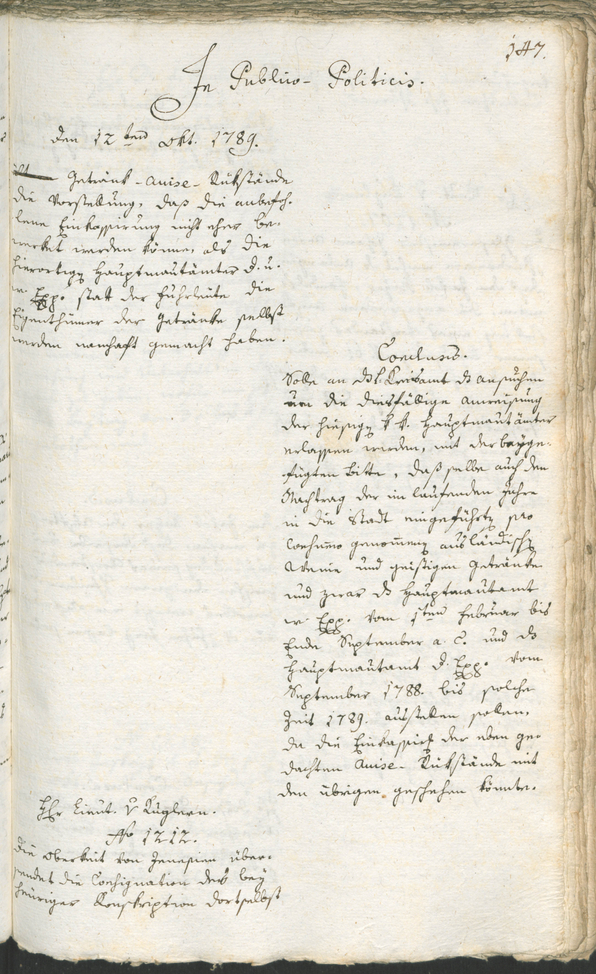 147.
In Publico-Politicis.
den 12ten Okt. 1789.
Getränk-Accise-Rükstände
die Vorstellung, daß die anbefoh-
lene Einkassirung nicht eher be-
wirket werden könne, als die
hierortigen Hauptmautämter d. u.
w. Exp. statt der Fuhrleute die
Eigenthümer der Getränke selbst
werden namhaft gemacht haben.
Conclusum.
Solle an das Kreisamt das Ansuchen
um die diesfällige Anweisung
der hiesigen k. k. Hauptmautämter
erlassen werden, mit der beyge-
fügten Bitte, daß selbe auch den
Nachtrag der im laufenden Jahre
in die Stadt eingeführten pro
Consumo genommenen ausländischen
Weine und geistigen Getränke
und zwar das Hauptmautamt
w. Exp. vom 1ten Februar bis
Ende September a. c. und das
Hauptmautamt d. Exp. vom
September 1788. bis solche
Zeit 1789. ausstellen sollen,
da die Einkassirung der eben ge-
dachten Accise-Rükstände mit
den übrigen geschehen könnte.
Hr Lieut. v Kuglern.
No 1212.
Die Oberkeit von Jenesien über-
sendet die Consignation der bey
heuriger Konskription dortselbst